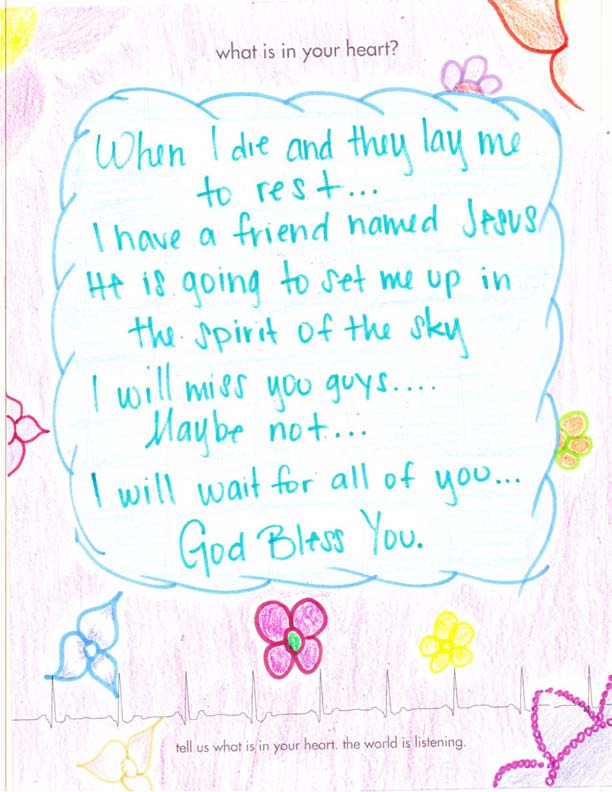 what is in your heart?
When I die and they lay me
to rest...
I have a friend named Jesus
He is going to set me up in
the spirit of the sky
I will miss you guys....
Maybe not...
I will wait for all of you...
God Bless You.
tell us what is in your heart. the world is listening.